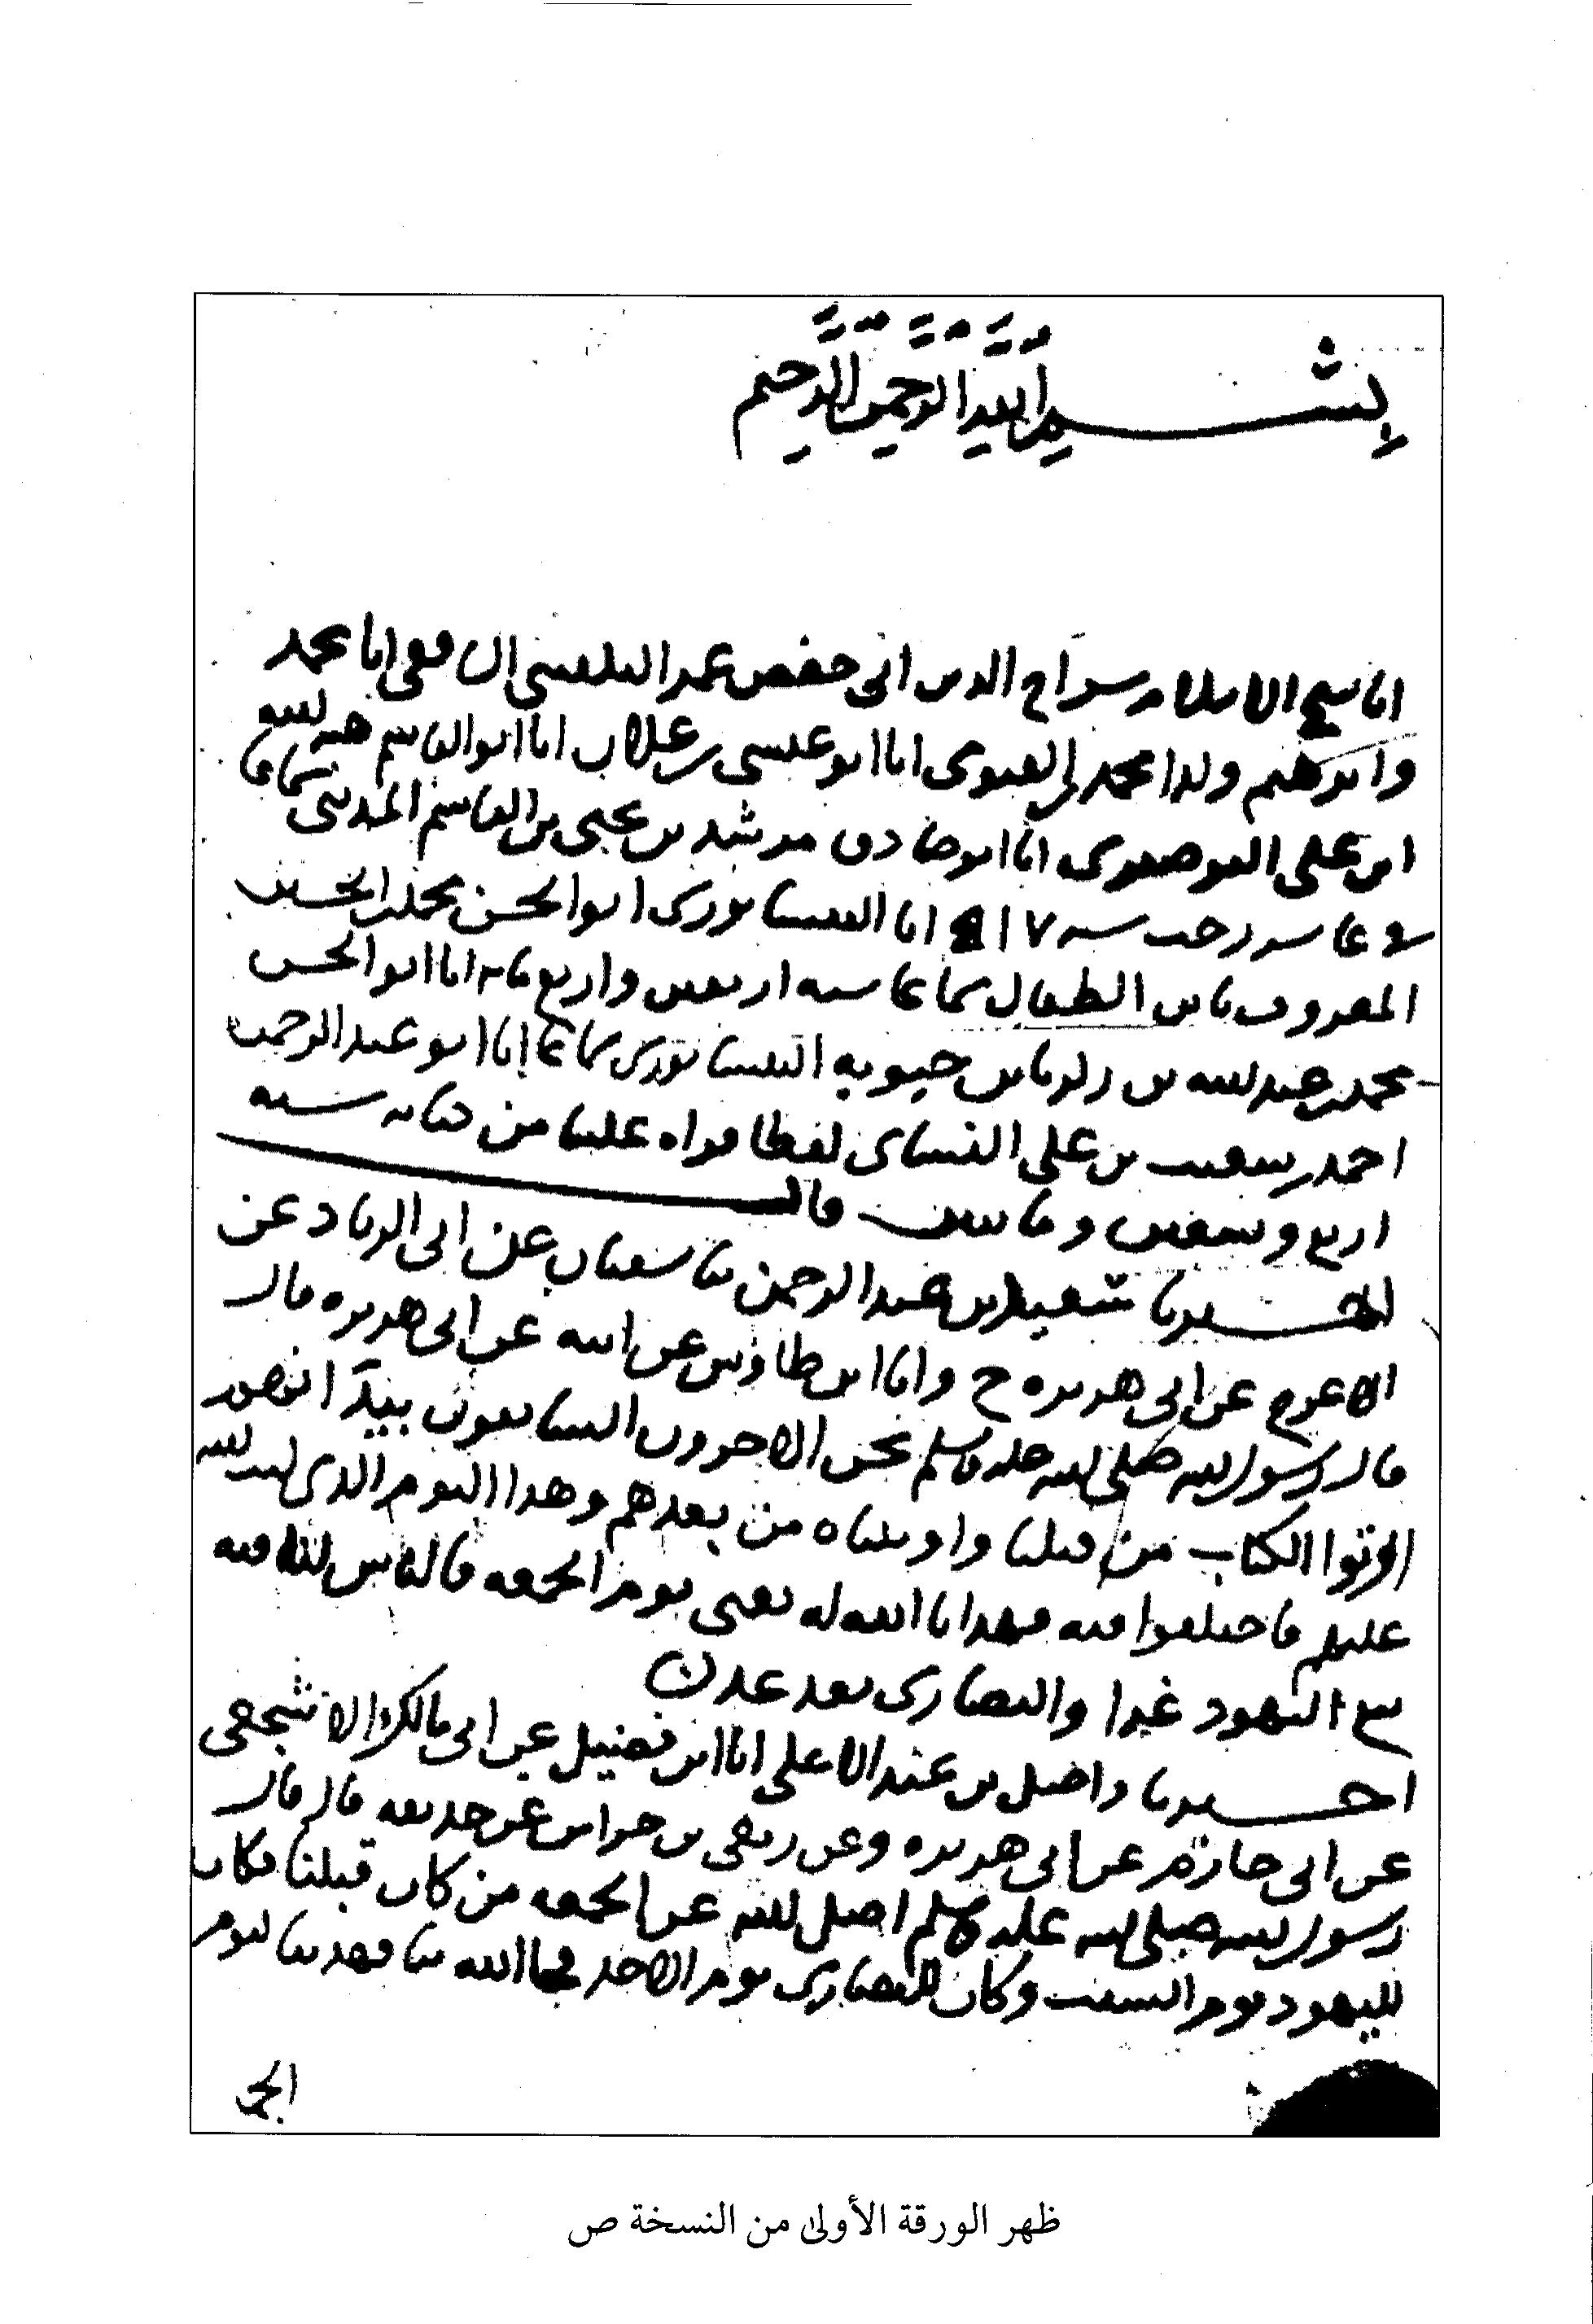 بسم الله الرحمن الرحيم
انا سيح الاسلام سراج الدين ابى حفص عمر البلقينى الشافعى انا محمد
وابرهيم ولدا محمد الفيومى انا ابو عيسى بن علاق انا ابو القاسم هبه الله
ابن على البوصيرى انا ابو صادق مرشد بن يحيى بن القاسم المدينى سماعا
فى سنه ٧١٥ انا النيسابورى ابو الحسن محمد بن الحسين
المعروف بابن الطفال سماعا سنه اربعين واربع مايه انا ابو الحسن
محمد بن عبد الله بن زكريا بن حيويه النيسابورى سماعا انا ابو عبد الرحمن
احمد بن شعيب بن على النساى لفظا قراه علينا من كتابه سنه
اربع وتسعين ومايتين قال
اخبرنا سعيد بن عبد الرحمن ثنا سفيان عن ابى الزناد عن
الاعرج عن ابى هريره ح وانا ابن طاوس عن ابيه عن ابى هريره قال
قال رسول الله صلى الله عليه وسلم نحن الاخرون السابقون بيد انهم
اوتوا الكتاب من قبلنا واوتيناه من بعدهم وهذا اليوم الذى كتب الله
عليهم فاختلفوا فيه فهدانا الله له يعنى يوم الجمعه فالناس لنا فيه
تبع اليهود غدا والنصارى بعد غد
اخبرنا واصل بن عبد الاعلى انا ابن فضيل عن ابى مالك الاشجعى
عن ابى حازم عن ابى هريره وعن ربعى بن حراش عن حذيفه قال قال
رسول الله صلى الله عليه وسلم اضل الله عن الجمعه من كان قبلنا فكان
لليهود يوم السبت وكان للنصارى يوم الاحد فجا الله بنا فهدينا ليوم
الجمعه
ظهر الورقة الأولى من النسخة ص